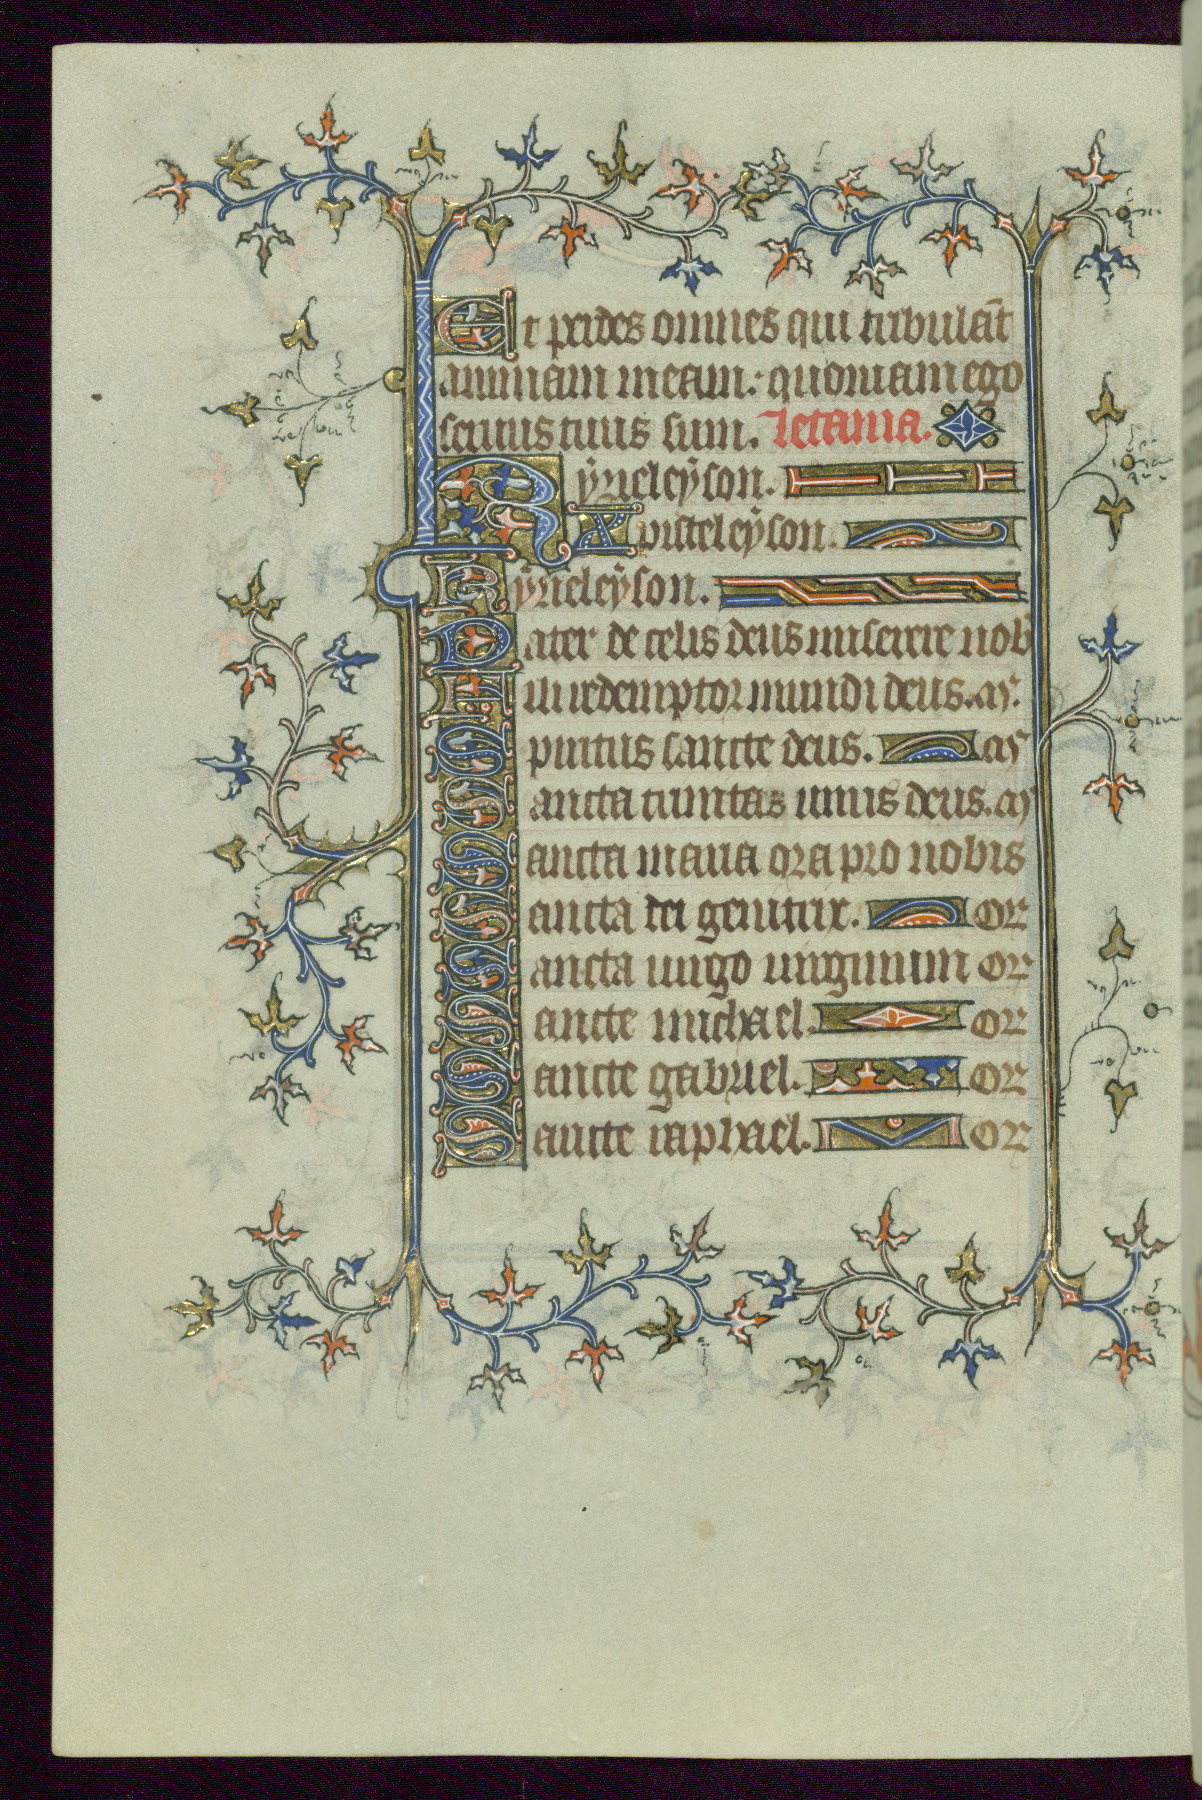 Et perdes omnes qui tribulāt
animam meam: quoniam ego
seruus tuus sum. Letania.
Kyrieleyson.
Xpisteleyson.
Kyrieleyson.
Pater de celis deus miserere nob
Fili redemptor mundi deus. m̄.
Spiritus sancte deus. m̄
Sancta trinitas unus deus. m̄
Sancta maria ora pro nobis
Sancta dei genitrix. or
Sancta uirgo uirginum or
Sancte michael. or
Sancte gabriel. or
Sancte raphael. or